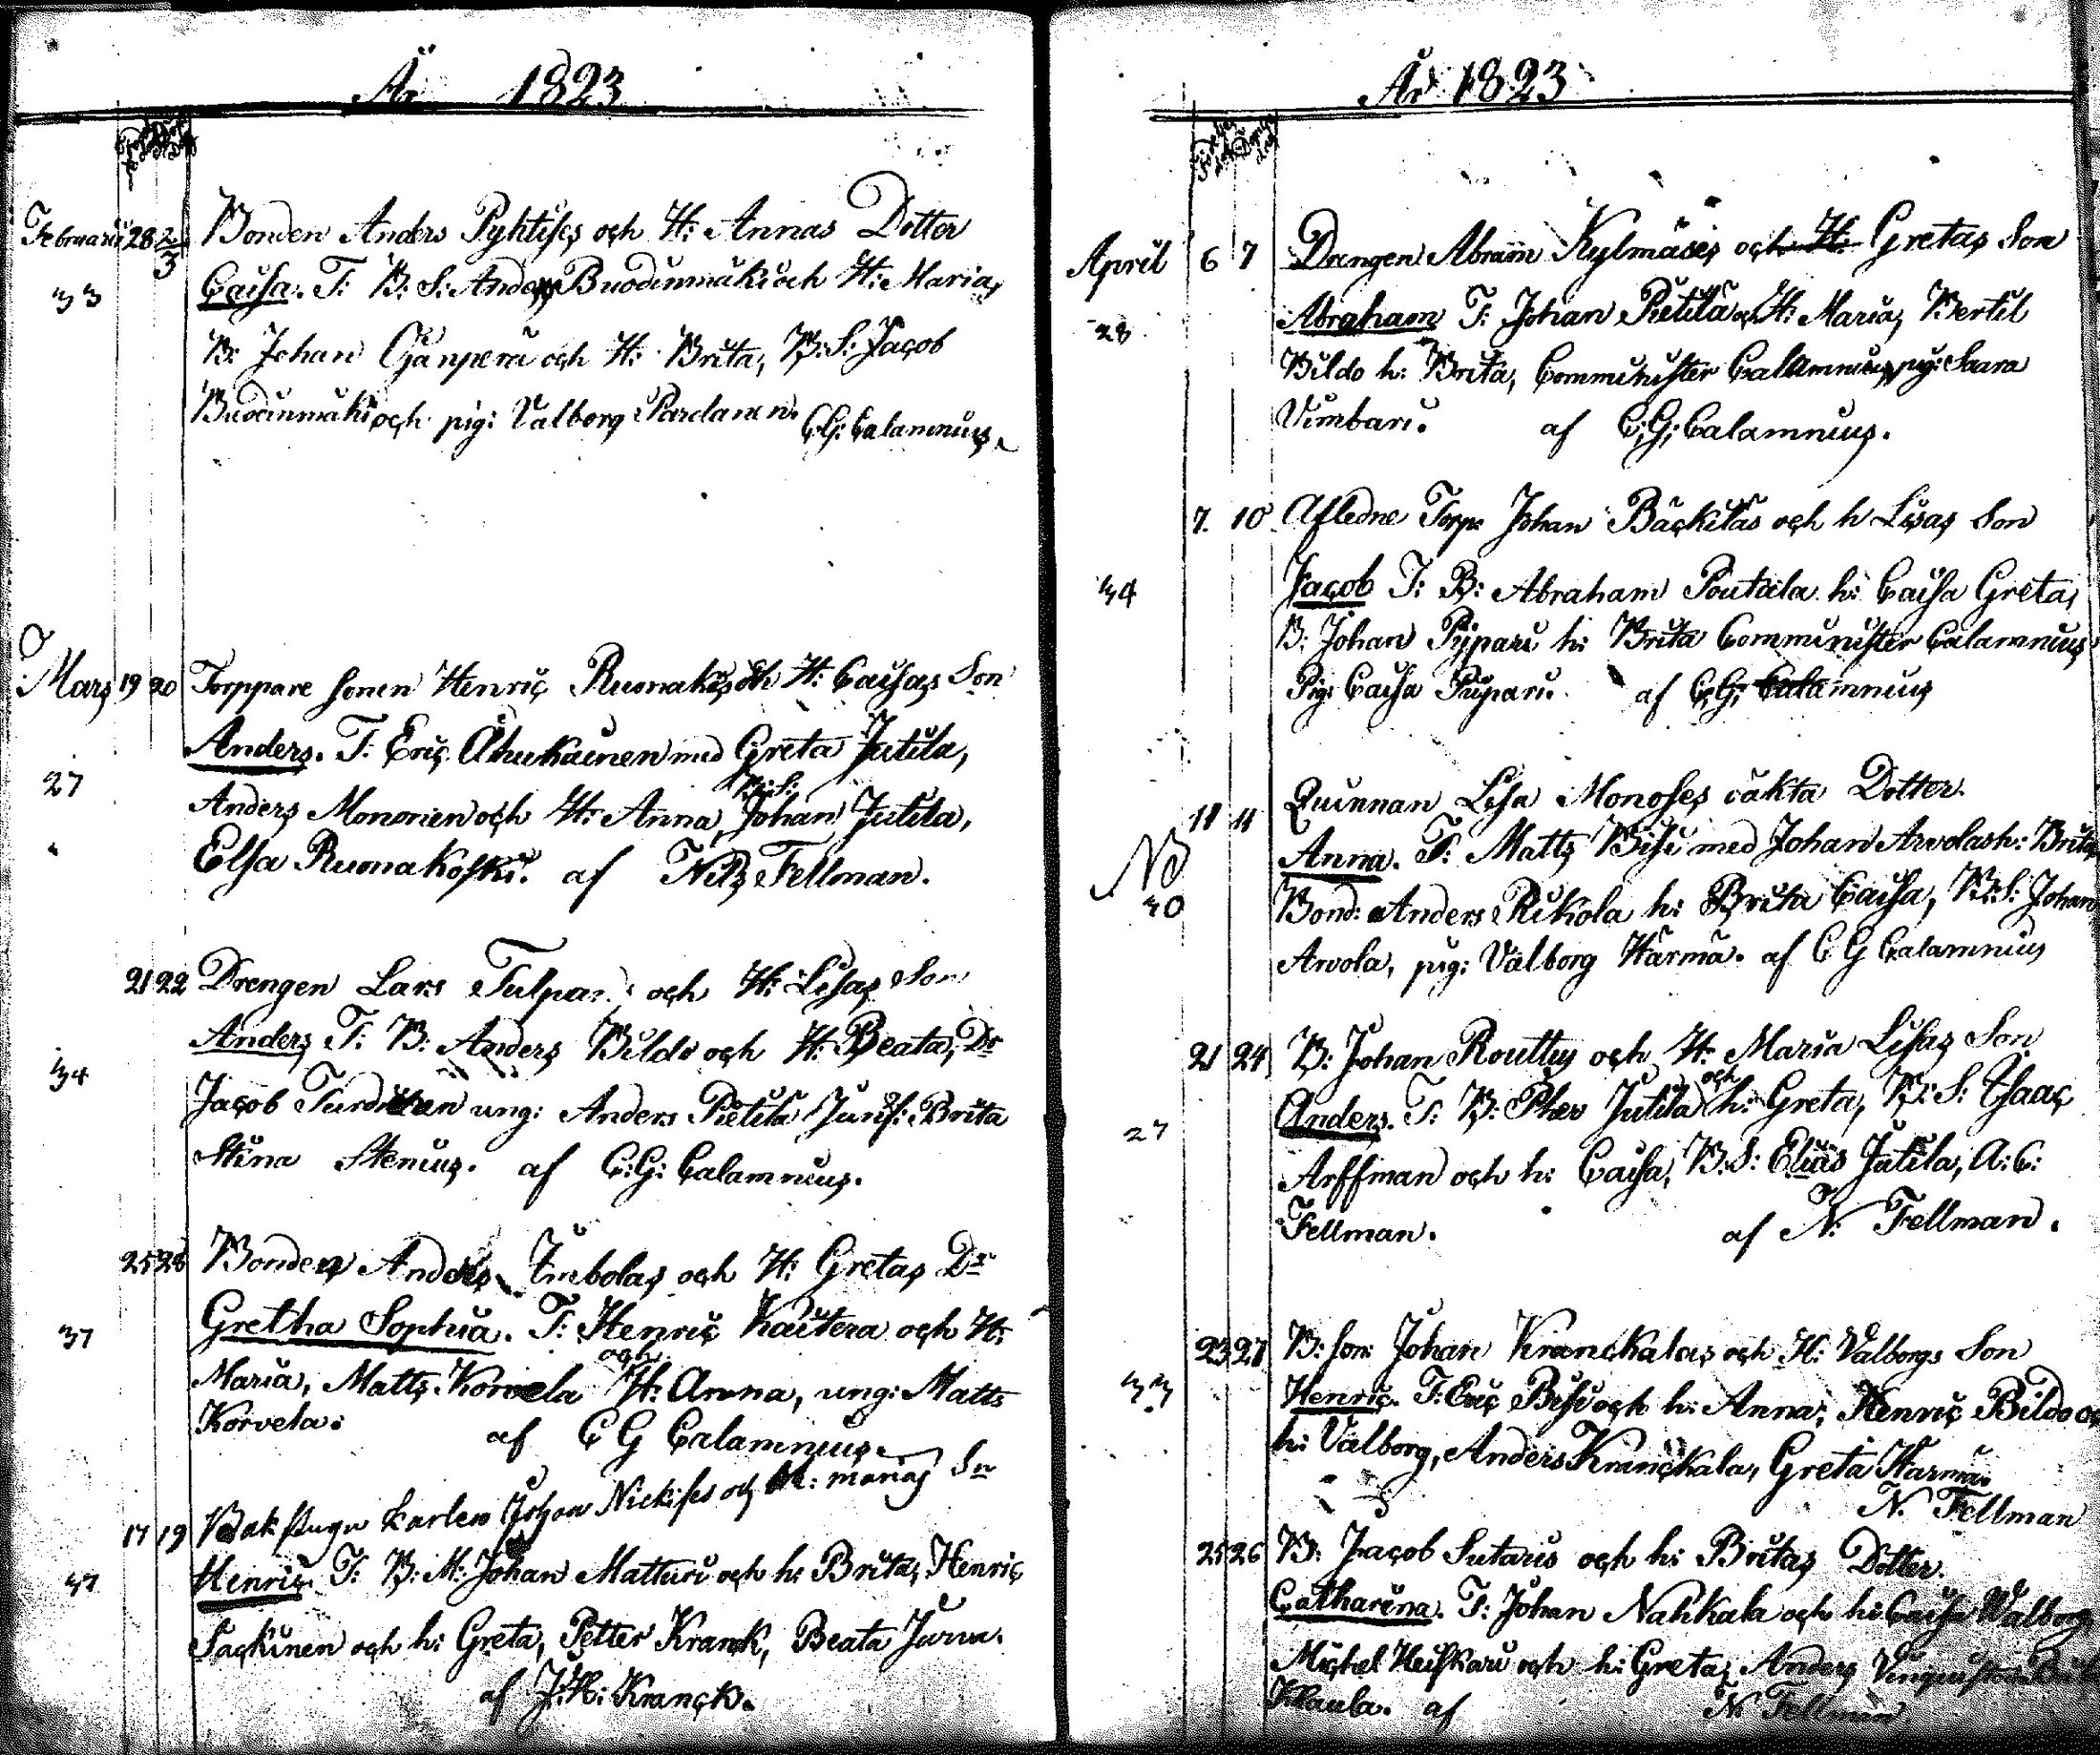 År 1823
Februarii 28 2/3 Bonden Anders Pyhtises och H: Annas Dotter
33 Caisa. T: B: S: Anders Buodinmäki och H: Maria,
B: Johan Gänperä och H: Brita, B: S: Jacob
Buodinmäki och pig: Valborg Pardanen. C:G: Calamnius.
Mars 19 20 Torppare sonen Henric Ruonakos och H: Caisas Son
Anders. T: Eric Ahukainen med Greta Jutila,
27 Anders Mononen och H: Anna, B: S: Johan Jutila,
Elsa Ruonakoski. af Nils Fellman.
21 22 Drengen Lars Tulpari och H: Lisas Son
34 Anders T: B: Anders Bildo och H: Beata, Dr
Jacob Turdinen ung: Anders Pietilä Junf: Brita
Stina Stenius. af C:G: Calamnius.
25 26 Bonden Anders Imbolas och H: Gretas Dr
37 Gretha Sophia. T: Henric Kaitera och H:
Maria, Matts Korvela och H: Anna, ung: Matts
Korvela. af C G Calamnius.
17 19 Bakstugu karlen Johan Nickises och H: Marias Sn
37 Henric. T: B: M: Johan Matturi och h: Brita, Henric
Sackinen och h: Greta, Petter Kranck, Beata Jurva.
af J:H: Kranck.
År 1823
Födelse dag Döpelse dag
April 6 7 Drengen Abram Kylmäses och H: Gretas Son
28 Abraham T: Johan Pietilä och H: Maria, Bertil
Bildo h: Brita, Comminister Calamnius, pig: Saara
Vimbari. af C:G: Calamnius.
7 10 Afledne Torp: Johan Bäckiläs och h Lisas Son
34 Jacob T: B: Abraham Poutala h: Caisa Greta,
B: Johan Pijpari h: Brita Comminister Calamnius
Pig: Caisa Piipari. af C:G: Calamnius
11 11 Quinnan Lisa Monoses oäkta Dotter.
NB Anna. T: Matts Bisi med Johan Arvolas h: Brita
40 Bond: Anders Rikola h: Brita Caisa, B: S: Johan
Arvola, pig: Valborg Härmä. af C G Calamnius
21 24 B: Johan Routtus och H: Maria Lisas Son
27 Anders. T: B: Pher Jutila och h: Greta, B: S: Isaac
Arffman och h: Caisa, B: S: Elias Jutila, A: C:
Fellman. af N: Fellman.
23 27 B: Son Johan Kranckalas och H: Valborgs Son
33 Henric. T: Eric Bisi och h: Anna, Henric Bildo och
h: Valborg, Anders Kranckala, Greta Härmä.
N. Fellman
25 26 B: Jacob Sutaris och h: Britas Dotter.
Catharina. T: Johan Nahkala och h: Caisa Walborg
Michel Heiskari och h: Greta, Anders
Klaula. af N. Fellman